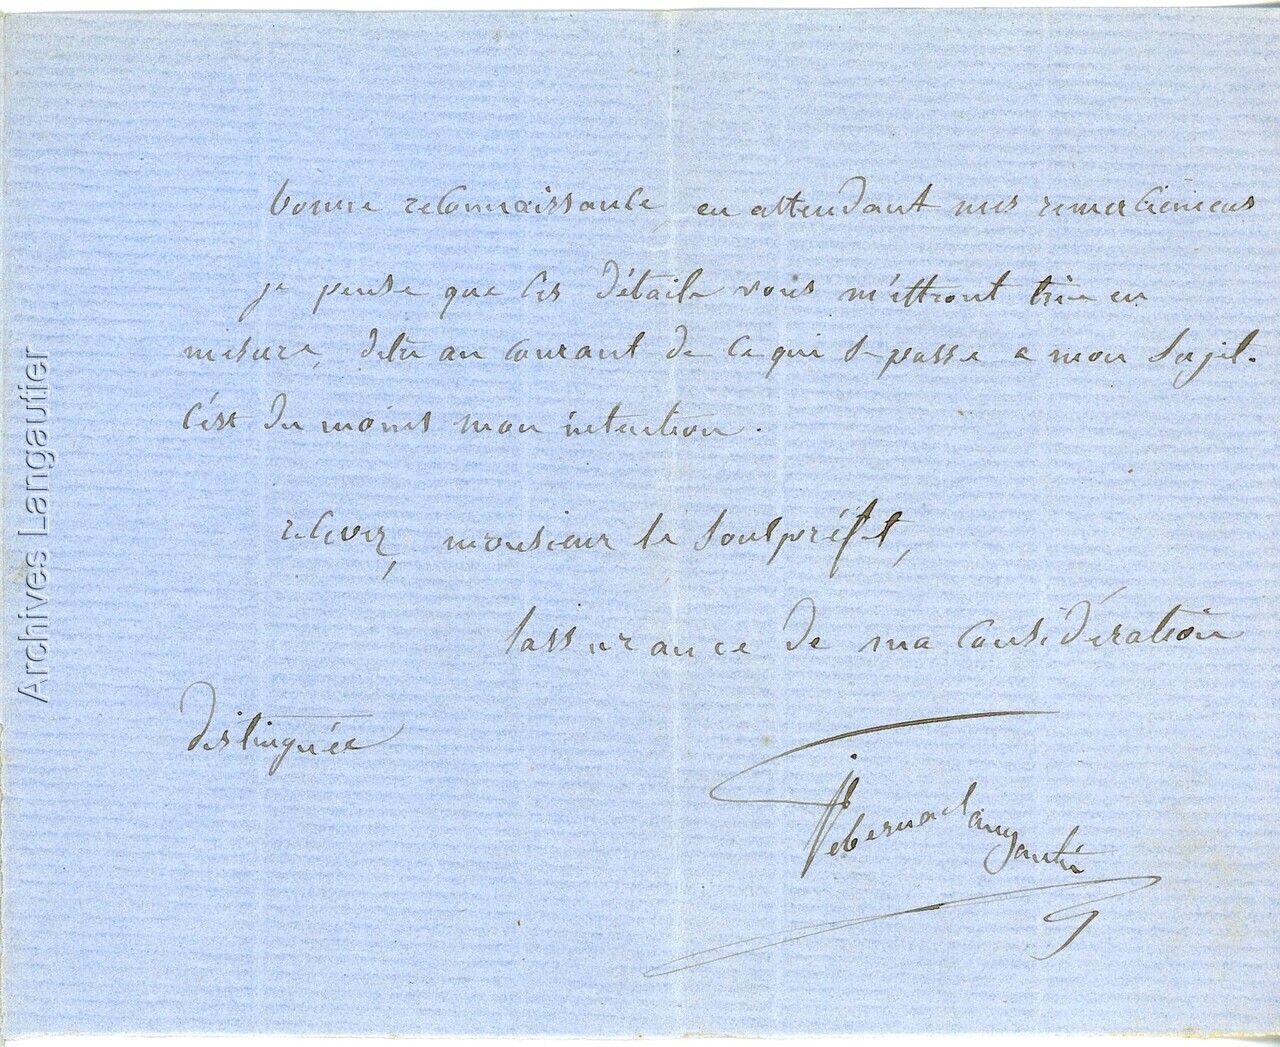 bonne reconnaissance en attendant mes remerciemens
je pense que ces détails vous m'ettront bien en
mesure, detre au courant de ce qui se passe a mon sujet.
c'est du moins mon intention.
recevez, monsieur le souspréfet,
lassurance de ma considération
distinguée
Langautier
Archives Langautier